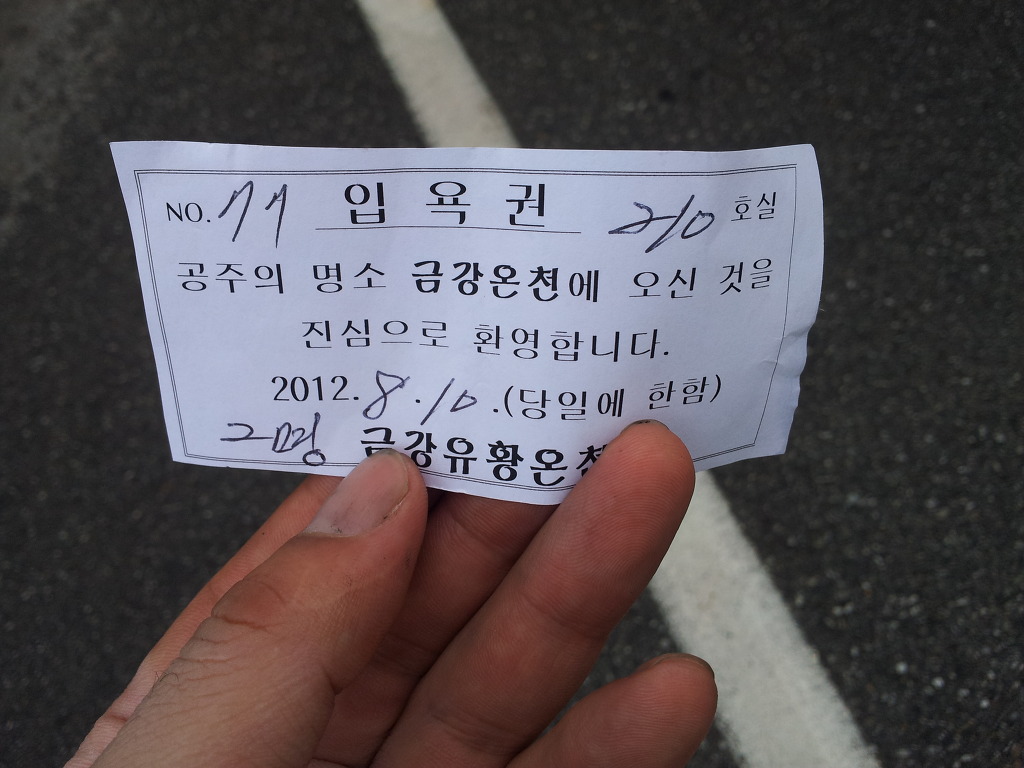 NO. 77 입욕권 210 호실
공주의 명소 금강온천에 오신 것을
진심으로 환영합니다.
2012. 8. 10 .(당일에 한함)
2명 금강유황온천